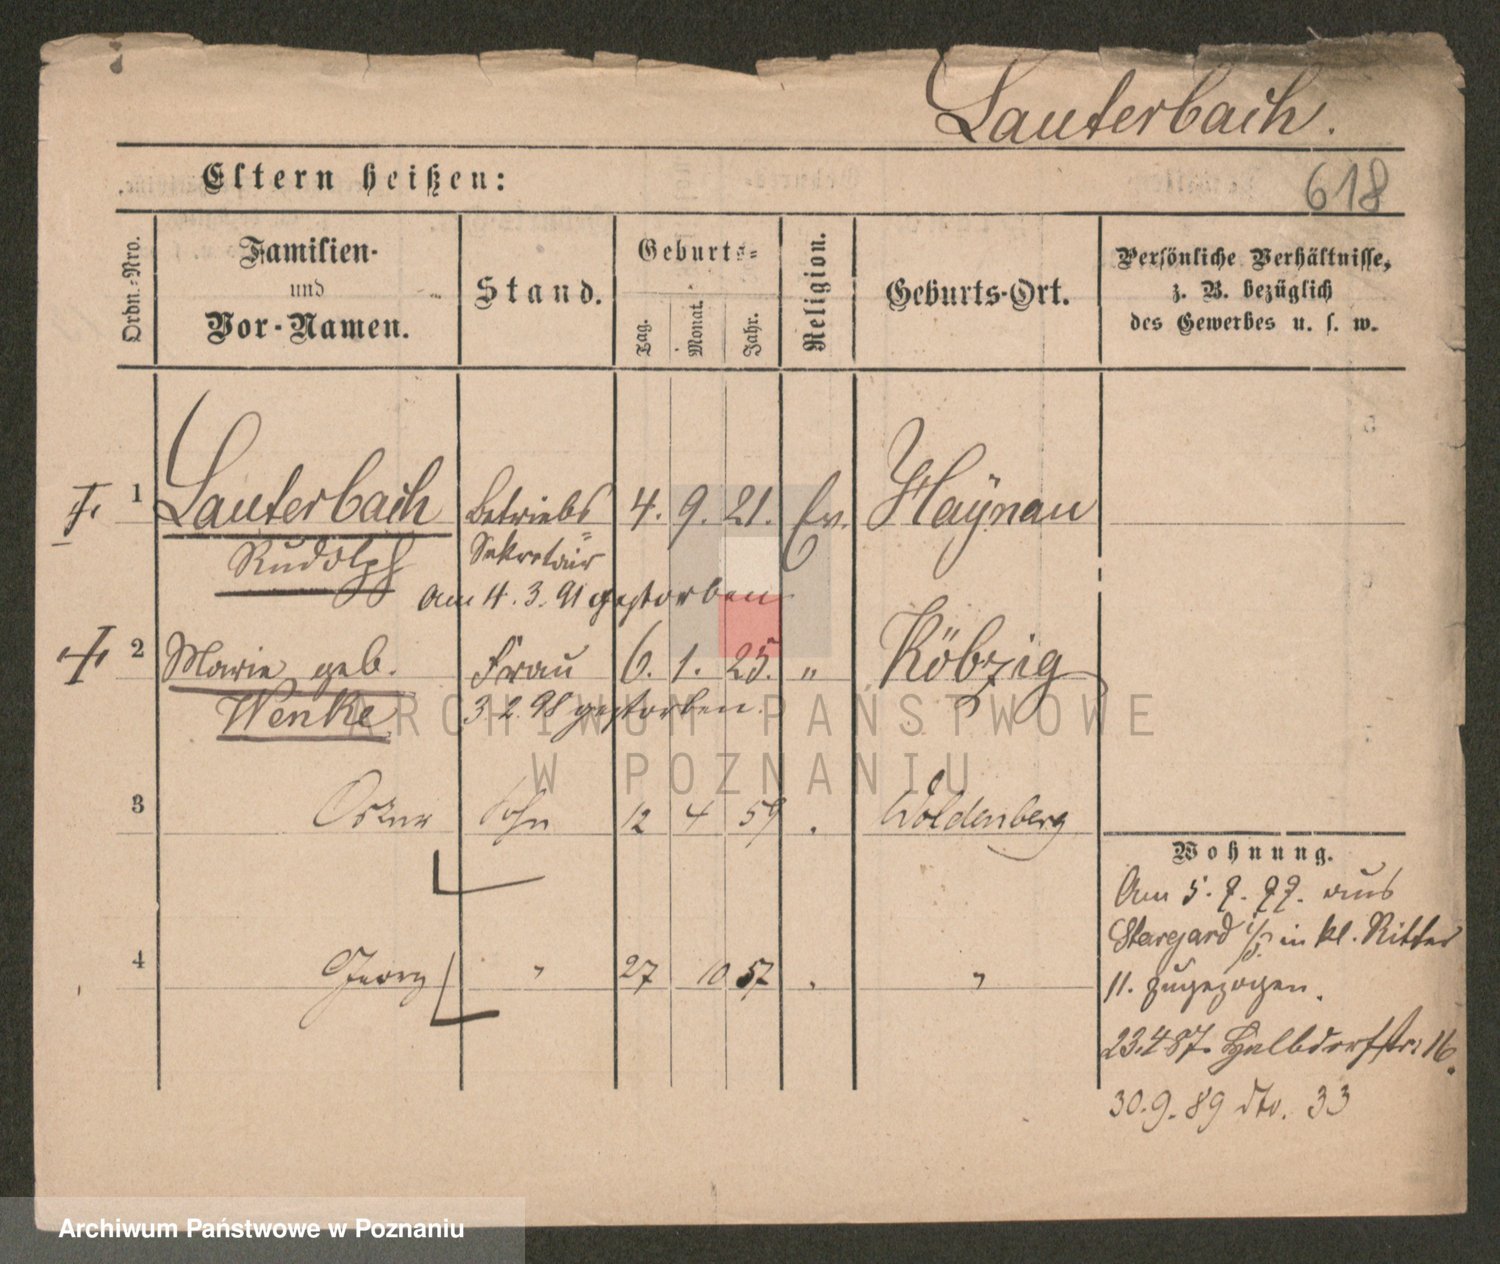 Lauterbach.
Eltern heißen:
618
Ordn.-Nro.
Familien-
und
Vor-Namen.
Stand.
Geburts-
Tag.
Monat.
Jahr.
Religion.
Geburts-Ort.
Persönliche Verhältnisse,
z. B. bezüglich
des Gewerbes u. s. w.
1 Lauterbach Betriebs 4. 9. 21. Ev. Haÿnau
Rudolph Sekretair
am 4. 3. 91 gestorben
2 Marie geb. Frau 6. 1. 25. " Köbzig
Wenke 3 2. 98 gestorben.
ARCHIWUM PAŃSTWOWE
W POZNANIU
3 Oskar Sohn 12 4 59 Woldenberg
Wohnung.
Am 5. 7. 77. aus
Stargard i/P. in kl. Ritter
4 Georg " 27 10 57 "
11. zugezogen.
23.4 87. Halbdorfstr. 16.
30.9.89 dto. 33
Archiwum Państwowe w Poznaniu